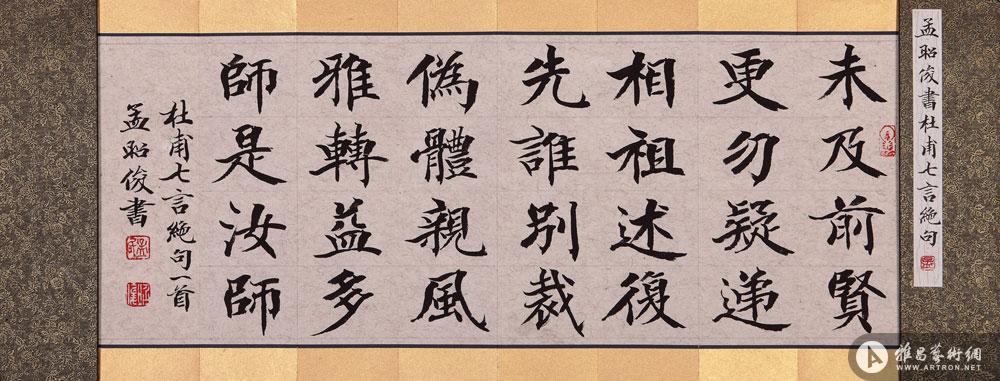 孟昭俊書杜甫七言絶句
未及前賢
更勿疑遞
相祖述復
先誰別裁
僞體親風
雅轉益多
師是汝師
杜甫七言絶句一首
孟昭俊書
雅昌藝術網
WWW.ARTRON.NET